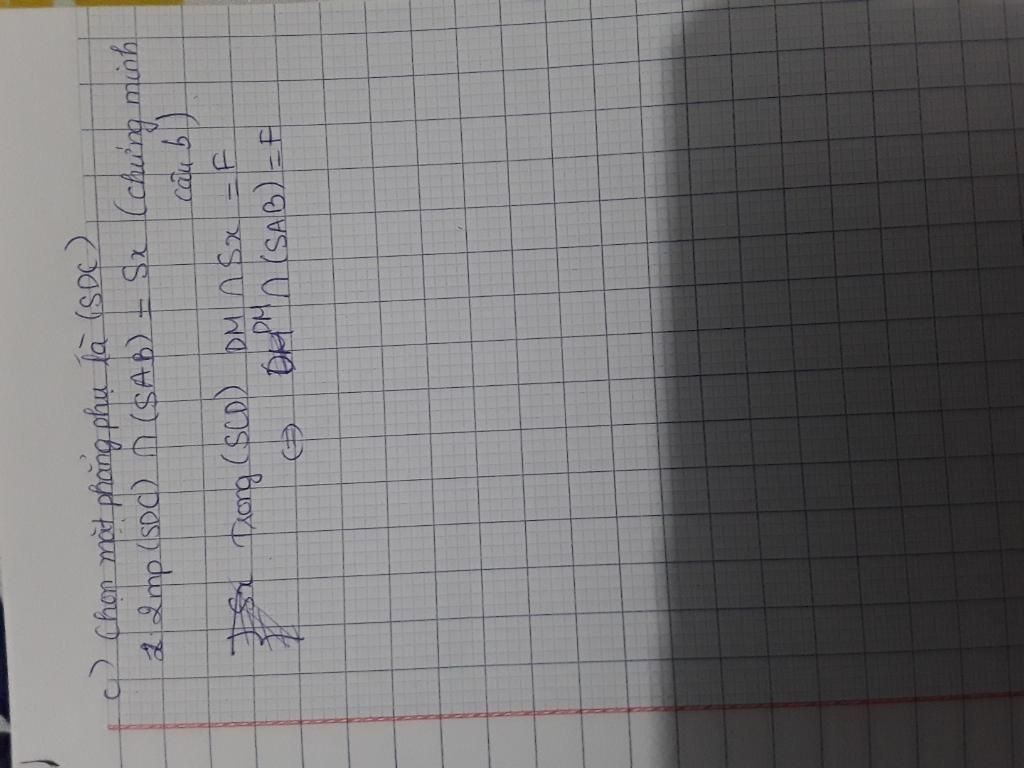 c) Chọn mặt phẳng phụ là (SDC)
2mp (SDC) ∩ (SAB) = Sx (chứng minh
câu b)
Trong (SCD) DM ∩ Sx = F
(=) DM ∩ (SAB) = F